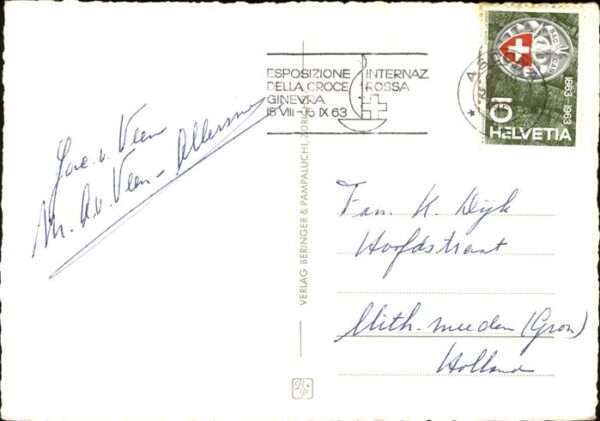 ESPOSIZIONE INTERNAZ.
DELLA CROCE ROSSA
GINEVRA
15 VIII - 15 IX 63
1863 1963
10
HELVETIA
Jac. v. Veen
A. v. Veen -
VERLAG BERINGER & PAMPALUCHI, ZÜRICH
Fam. K. Dijk
Hoofdstraat
Midh. meeden (Gron)
Holland